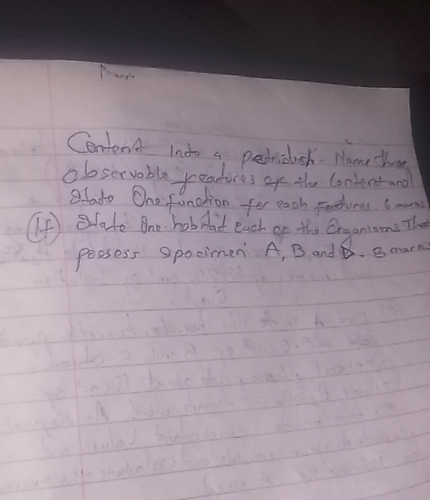 Content into a petridish. Name three
observable features of the Content and
State One function for each features. 6 mar
(If) State One habitat each of the Organisms Tha
possess specimen A, B and D. 3 mar